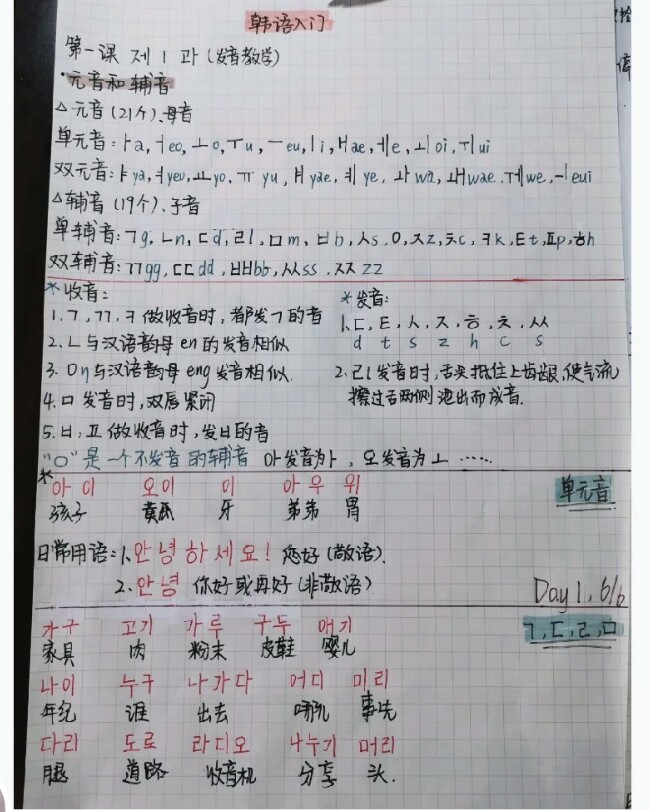 韩语入门
第一课 제 1 과 (发音教学)
·元音和辅音
△元音(21个)、母音
单元音:ㅏa,ㅓeo,ㅗo,ㅜu,ㅡeu,ㅣi,ㅐae,ㅔe,ㅚoi,ㅟui
双元音:ㅑya,ㅕyeo,ㅛyo,ㅠyu,ㅒyae,ㅖye,ㅘwa,ㅙwae.ㅞwe,ㅢeui
△辅音(19个)、子音
单辅音:ㄱg,ㄴn,ㄷd,ㄹl,ㅁm,ㅂb,ㅅs,ㅇ,ㅈz,ㅊc,ㅋk,ㅌt,ㅍp,ㅎh
双辅音:ㄲgg,ㄸdd,ㅃbb,ㅆss,ㅉzz
*收音:
1.ㄱ,ㄲ,ㅋ做收音时,都发ㄱ的音
2.ㄴ与汉语韵母en的发音相似
3.ㅇn与汉语韵母eng发音相似.
4.ㅁ发音时,双唇紧闭
5.ㅂ,ㅍ做收音时,发ㅂ的音
*发音:
1.ㄷ,ㅌ,ㅅ,ㅈ,ㅎ,ㅊ,ㅆ
d t s z h c s
2.ㄹl发音时,舌尖抵住上齿龈,使气流
擦过舌两侧泄出而成音.
"ㅇ"是一个不发音的辅音 아发音为ㅏ,오发音为ㅗ……
*
아이 오이 이 아우 위
孩子 黄瓜 牙 弟弟 胃
单元音
日常用语:1.안녕하세요! 您好(敬语).
2.안녕 你好或再好(非敬语)
Day1,6/6
가구 고기 가루 구두 애기
家具 肉 粉末 皮鞋 婴儿
ㄱ,ㄷ,ㄹ,ㅁ
나이 누구 나가다 어디 미리
年纪 谁 出去 哪儿 事先
다리 도로 라디오 나누기 머리
腿 道路 收音机 分享 头.